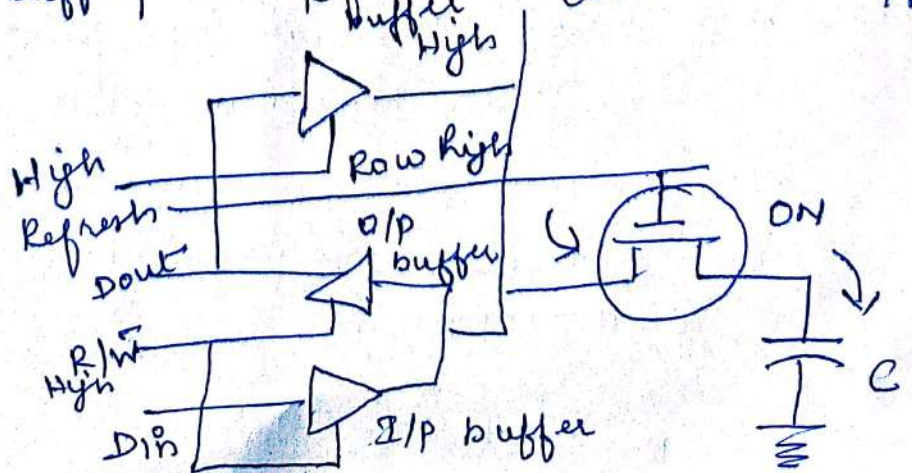 Buffer
High
High
Row high
Refresh
ON
O/P
buffer
Dout
R/W̄
High
C
Din
I/P buffer